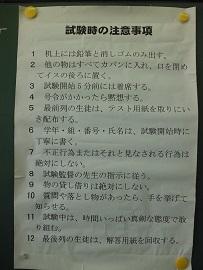 試験時の注意事項
1 机上には鉛筆と消しゴムのみ出す。
2 他の物はすべてカバンに入れ、口を閉め
てイスの後ろに置く。
3 試験開始5分前には着席する。
4 号令がかかったら黙想する。
5 最前列の生徒は、テスト用紙を取りにい
き配布する。
6 学年・組・番号・氏名は、試験開始時に
丁寧に書く。
7 不正行為またはそれと見なされる行為は
絶対にしない。
8 試験監督の先生の指示に従う。
9 物の貸し借りは絶対にしない。
10 質問や落とし物があったら、手を挙げて
知らせる。
11 試験中は、時間いっぱい真剣な態度で取
り組む。
12 最後列の生徒は、解答用紙を回収する。